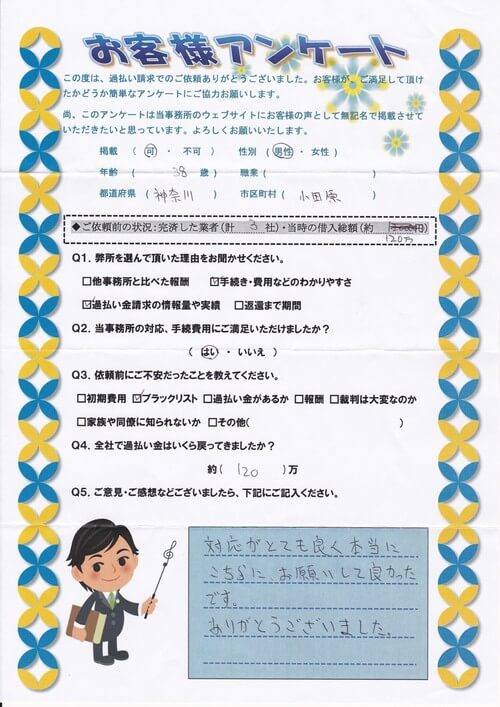 お客様アンケート
この度は、過払い請求でのご依頼ありがとうございました。お客様が、ご満足して頂け
たかどうか簡単なアンケートにご協力お願いします。
尚、このアンケートは当事務所のウェブサイトにお客様の声として無記名で掲載させて
いただきたいと思っています。よろしくお願いいたします。
掲載 ( 可 ・ 不可 ) 性別 ( 男性 ・ 女性 )
年齢 ( 38 歳 ) 職業 ( )
都道府県 ( 神奈川 ) 市区町村 ( 小田原 )
◆ご依頼前の状況:完済した業者(計 3 社)・当時の借入総額(約 円)
120万
Q1. 弊所を選んで頂いた理由をお聞かせください。
□他事務所と比べた報酬 ☑手続き・費用などのわかりやすさ
☑過払い金請求の情報量や実績 □返還まで期間
Q2. 当事務所の対応、手続費用にご満足いただけましたか?
( はい ・ いいえ )
Q3. 依頼前にご不安だったことを教えてください。
□初期費用 ☑ブラックリスト □過払い金があるか □報酬 □裁判は大変なのか
□家族や同僚に知られないか □その他( )
Q4. 全社で過払い金はいくら戻ってきましたか?
約( 120 )万
Q5. ご意見・ご感想などございましたら、下記にご記入ください。
対応がとても良く本当に
こちらに、お願いして良かった
です。
ありがとうございました。